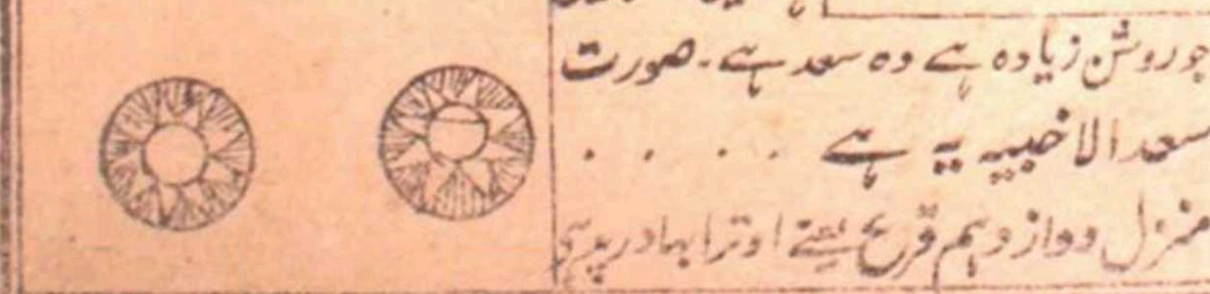 جو روشن زیادہ ہے وہ سعد ہے۔ صورت
سعد الاخبیہ یہ ہے . . . . .
منزل دوازدہم فرغ یعنے اوترابہادرپد